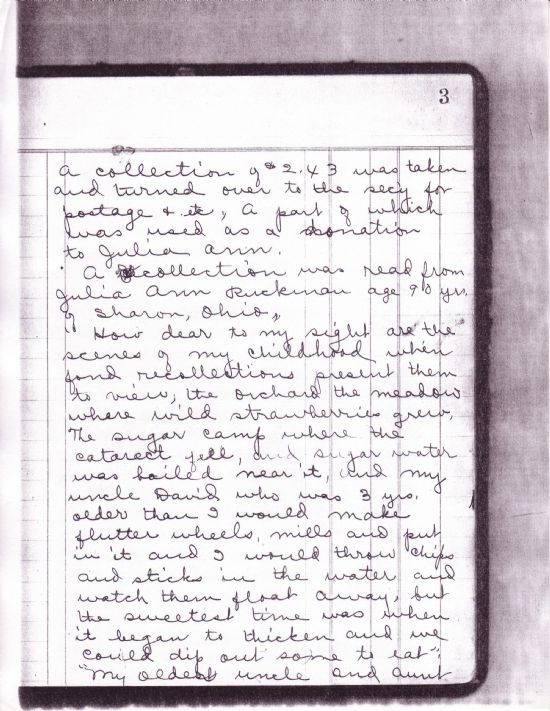 3
A collection of $2.43 was taken
and turned over to the secy for
postage & etc, A part of which
was used as a donation
to Julia Ann.
A recollection was read from
Julia Ann Ruckman age 90 yrs.
of Sharon, Ohio,,
"How dear to my sight are the
scenes of my childhood when
fond recollections present them
to view, the orchard the meadow
where wild strawberries grew,
The sugar camp where the
cataract fell, and sugar water
was boiled near it, and my
uncle David who was 3 yrs.
older than I would make
flutter wheels, mills and put
in it and I would throw chips
and sticks in the water and
watch them float away, but
the sweetest time was when
it began to thicken and we
could dip out some to eat".
"My oldest uncle and aunt